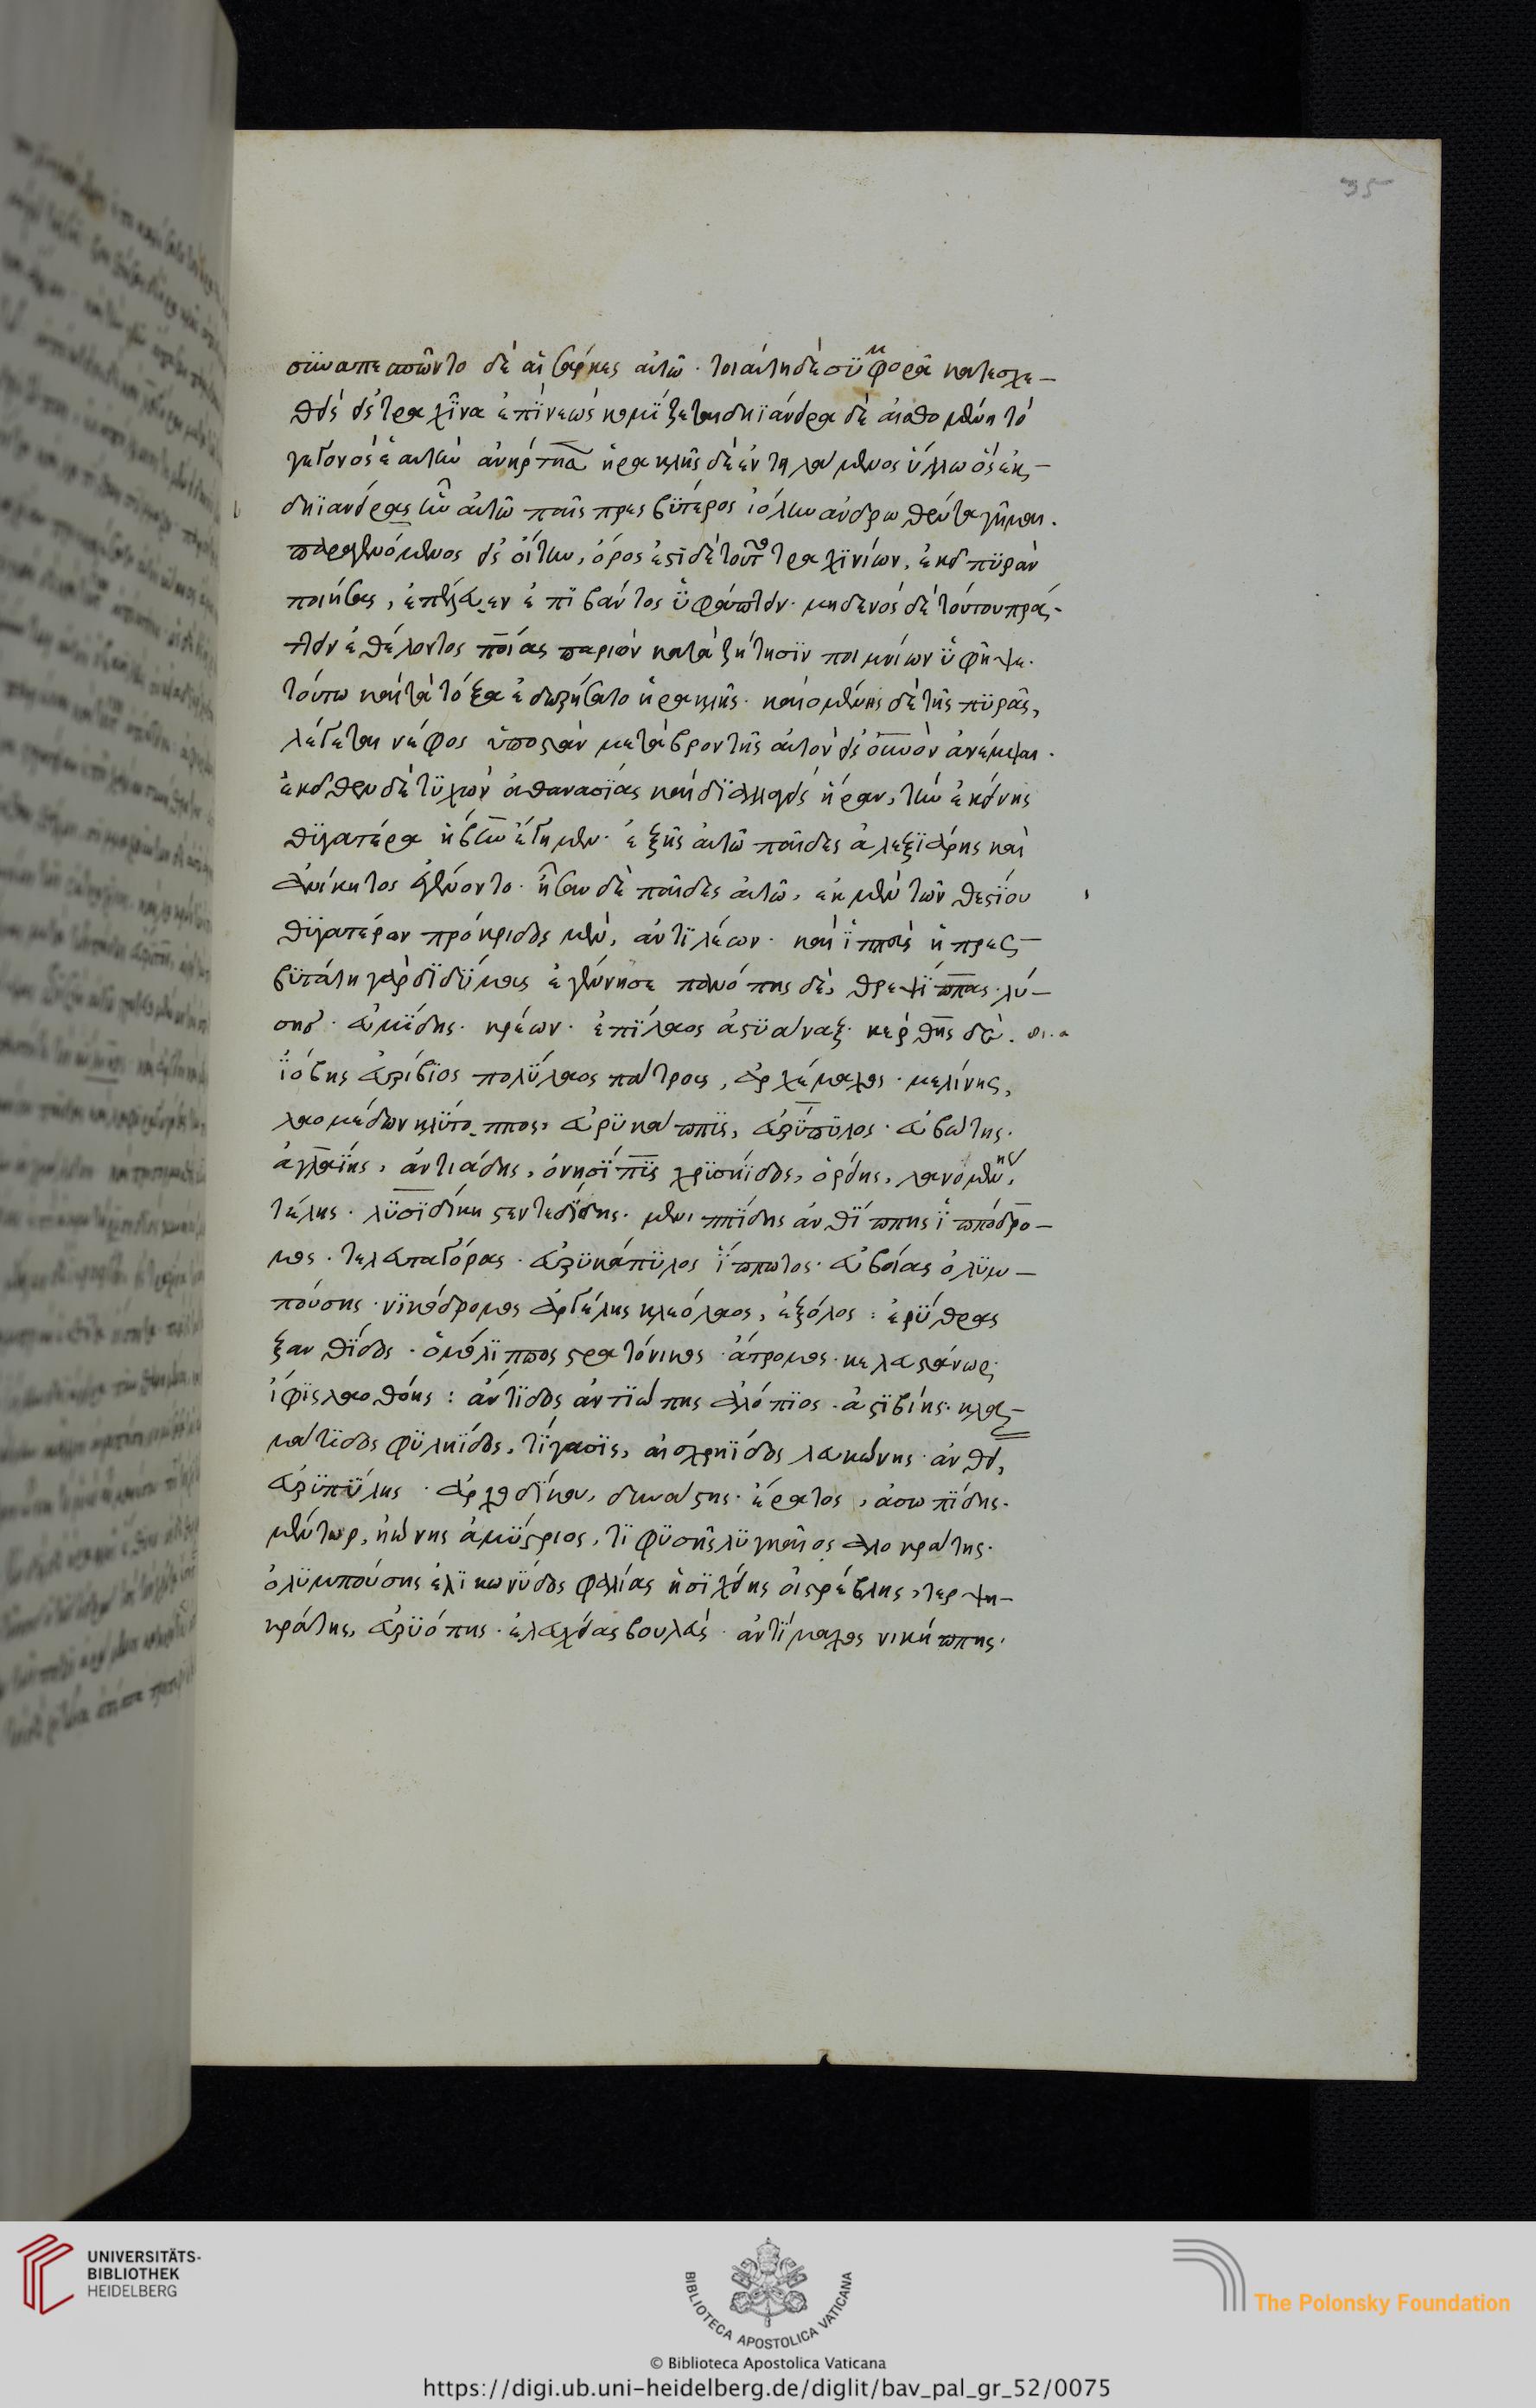 35
συναπεσπῶντο δὲ αἱ σάρκες αὐτῶ· τοιαύτη δὲ συμφορᾶ κατασχε-
θεὶς εἰς τραχῖνα ἐπὶ νεὼς κομίζεται δηϊάνειρα δὲ αἰσθομένη τὸ
γεγονὸς ἑαυτὴν ἀνήρτησεν ἡρακλῆς δὲ ἐντειλάμενος ὕλλω ὃς ἐκ
δηϊανείρας ἦν αὐτῶ παῖς πρεσβύτερος ἰόλην ἀνδρωθέντα γῆμαι.
παραγενόμενος εἰς οἴτην, ὄρος ἐστὶ δὲ τοῦτο τραχινίων, ἐκεῖ πυρὰν
ποιήσας, ἐκέλευσεν ἐπιβάντος ὑφάπτειν· μηδενὸς δὲ τοῦτο πράτ-
τειν ἐθέλοντος ποίας παριὼν κατὰ ζήτησιν ποιμνίων ὑφῆψε.
τούτω καὶ τὰ τόξα ἐδωρήσατο ἡρακλῆς· καιομένης δὲ τῆς πυρᾶς,
λέγεται νέφος ὑποστὰν μετὰ βροντῆς αὐτὸν εἰς οὐρανὸν ἀναπέμψαι.
ἐκεῖθεν δὲ τυχὼν ἀθανασίας καὶ διαλλαγεὶς ἥραν, τὴν ἐκείνης
θυγατέρα ἥβην ἔγημεν· ἐξ ἧς αὐτῶ παῖδες ἀλεξιάρης καὶ
ἀνίκητος ἐγένοντο· ἦσαν δὲ παῖδες αὐτῶ, ἐκ μὲν τῶν θεστίου
θυγατέρων πρόκριδος μὲν, ἀντιλέων· καὶ ἱππεὺς ἡ πρεσ-
βυτάτη γὰρ διδύμους ἐγέννησε πανόπης δὲ, θρεψίππας· λύ-
σης· εὐμίδης· κρέων· ἐπιλάϊς ἀστυάναξ· κέρθης
ἰόβης εὐρυβίος πολύλαος πατρους, ἀρχέμαχος· μελίνης,
λαομέδων κλυτόππος, εὐρύκαπυς, εὐρύπυλος· εὐβώτης.
ἀγλαΐης, ἀντιάδης, ὀνήσιππις χρυσηίδος, ὀρείης, λαομένης,
τέλης· λυσιδίκη ἐντεδίδης· μενιππίδης ἀνθίππης ἱππόδρο-
μος· τελευταγόρας· εὐρυκάπυλος ἵππωτος· εὐβοίας ὀλύμ-
πούσης· νικόδρομος ἀργέλης κλεόλαος, ἐξόλης: ἐρύθρας
ξανθίδος· ὁμόλιππος στρατόνικος· ἄτρομος· κελευστάνωρ·
ἶφις λαοθόης: ἀντίδος ἀντιώπης ἀλόπιος· ἀστιβίης· κλα-
μάτιδος φυληίδος, τίγασις, αἰσχρηίδος λευκώνης· ἀνθείας,
εὐρυπύλης· ἀρχεδίκου, δυνάστης· ἐρατοῦς, ἀσωπίδης.
μέντωρ, ἠώνης ἀμύστριος, τιφύσης λυγκαῖος ἁλοκράτης·
ὀλυμπούσης ἑλικωνίδος φαλίας ἡσυχείης οἰστρέβλης, τερψη-
κράτης, εὐρυόπης· ἐλαχείας βουλεύς· ἀντίμαχος νικίππης·
UNIVERSITÄTS-
BIBLIOTHEK
HEIDELBERG
BIBLIOTECA APOSTOLICA VATICANA
The Polonsky Foundation
© Biblioteca Apostolica Vaticana
https://digi.ub.uni-heidelberg.de/diglit/bav_pal_gr_52/0075